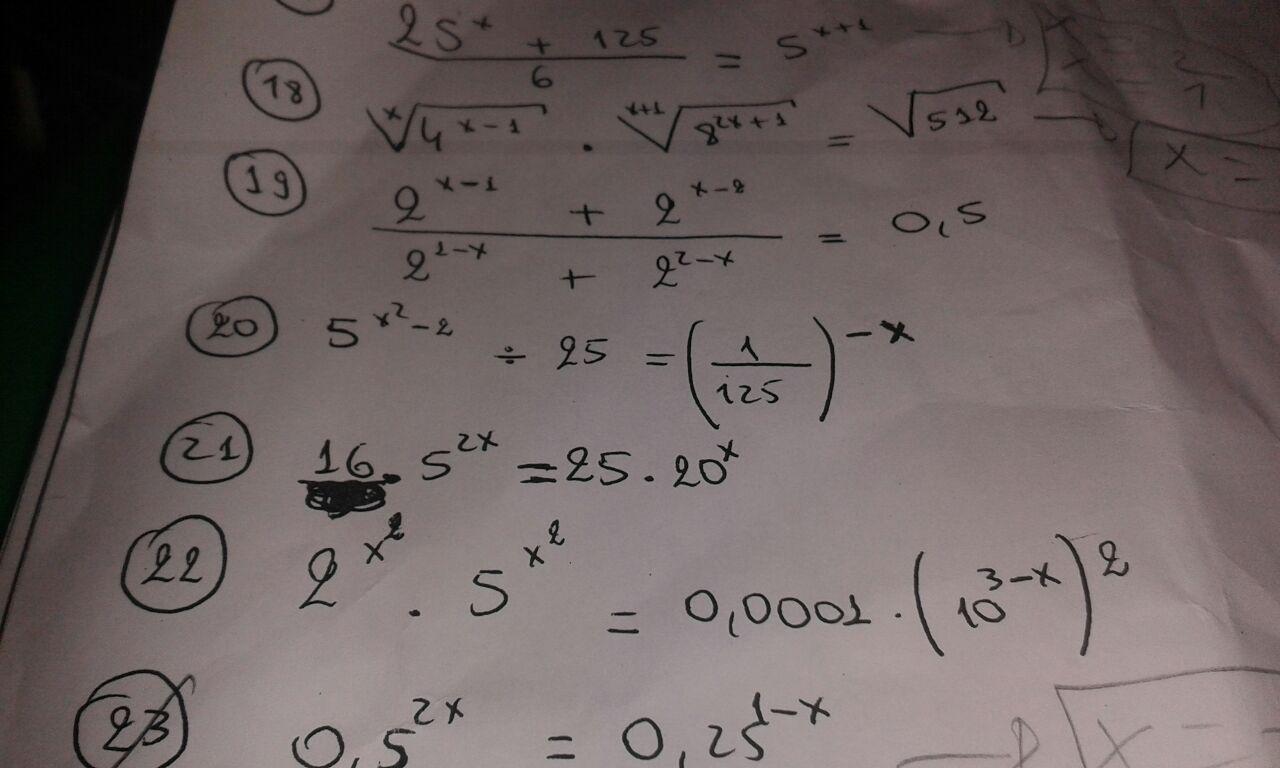 (25^x + 125)/6 = 5^(x+1) → x =
18 ˣ√(4^(x-1)) · ˣ⁺¹√(8^(2x+1)) = √512 → x =
19 (2^(x-1) + 2^(x-2))/(2^(1-x) + 2^(2-x)) = 0,5
20 5^(x²-2) ÷ 25 = (1/125)^(-x)
21 16 · 5^(2x) = 25 · 20^x
22 2^(x²) · 5^(x²) = 0,0001 · (10^(3-x))²
23 0,5^(2x) = 0,25^(1-x) → x =